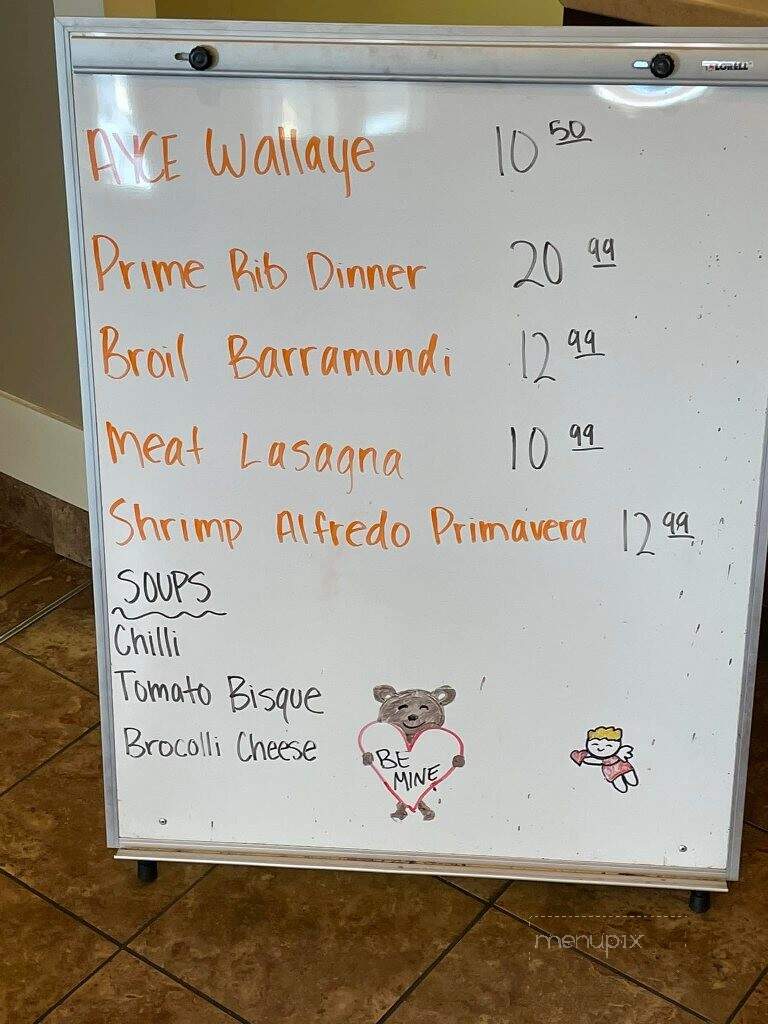 LORELL
AYCE Wallaye 10 50
Prime Rib Dinner 20 99
Broil Barramundi 12 99
Meat Lasagna 10 99
Shrimp Alfredo Primavera 12 99
SOUPS
Chilli
Tomato Bisque
Brocolli Cheese
BE
MINE
menupix